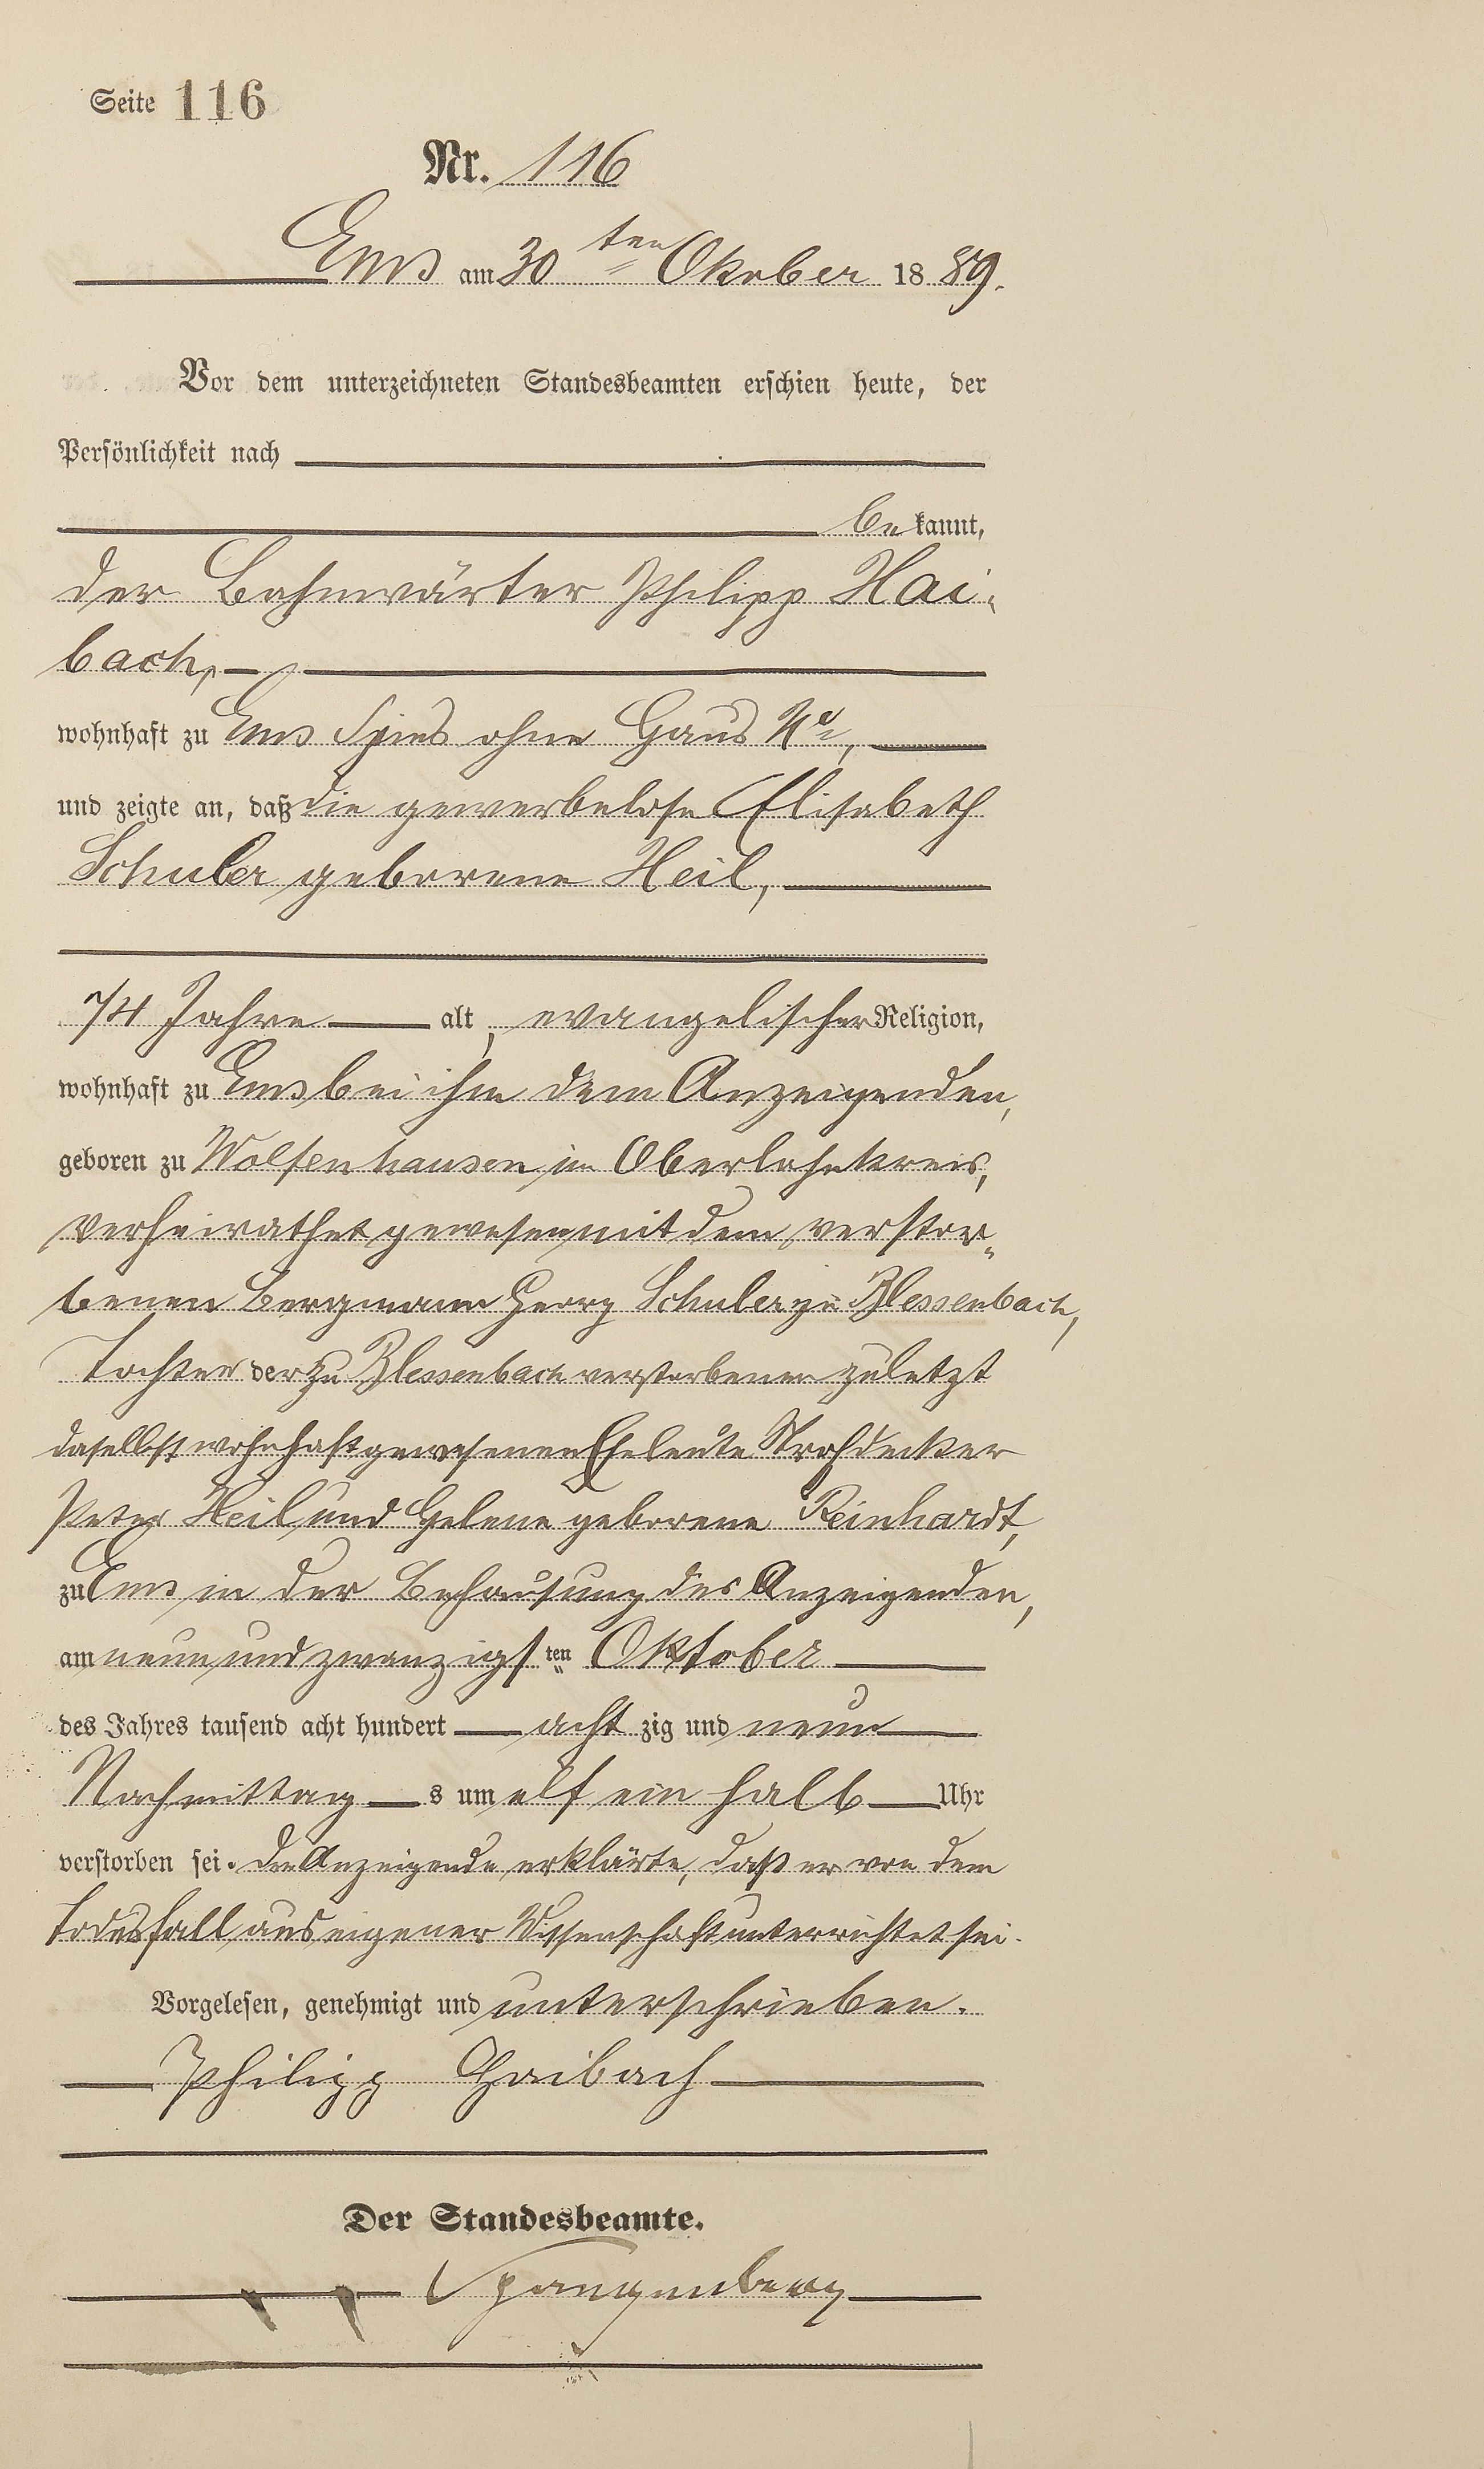 Seite 116
Nr. 116
Ems am 30 ten Okober 1889.
Vor dem unterzeichneten Standesbeamten erschien heute, der
Persönlichkeit nach
bekannt,
der Bahnwärter Philipp Hai-
bach,
wohnhaft zu Ems Spies ohne Haus No,
und zeigte an, daß die gewerbelose Elisabeth
Schuler geborene Heil,
74 Jahre alt, evangelischer Religion,
wohnhaft zu Ems bei ihm dem Anzeigenden,
geboren zu Wolfenhausen im Oberlahnkreis,
verheirathet gewesen mit dem verstor-
benen Bergmann Georg Schuler zu Blessenbach,
Tochter der zu Blessenbach verstorbenen zuletzt
daselbst wohnhaft gewesenen Eheleute Strohdecker
Peter Heil und Helene geborene Reinhardt,
zu Ems in der Behausung des Anzeigenden,
am neun und zwanzigsten Oktober
des Jahres tausend acht hundert achtzig und neun
Nachmittags um elf ein halb Uhr
verstorben sei. Der Anzeigende erklärte, daß er von dem
Todesfall aus eigener Wissenschaft unterrichtet sei.
Vorgelesen, genehmigt und unterschrieben.
Philipp Haibach
Der Standesbeamte.
Spangenberg